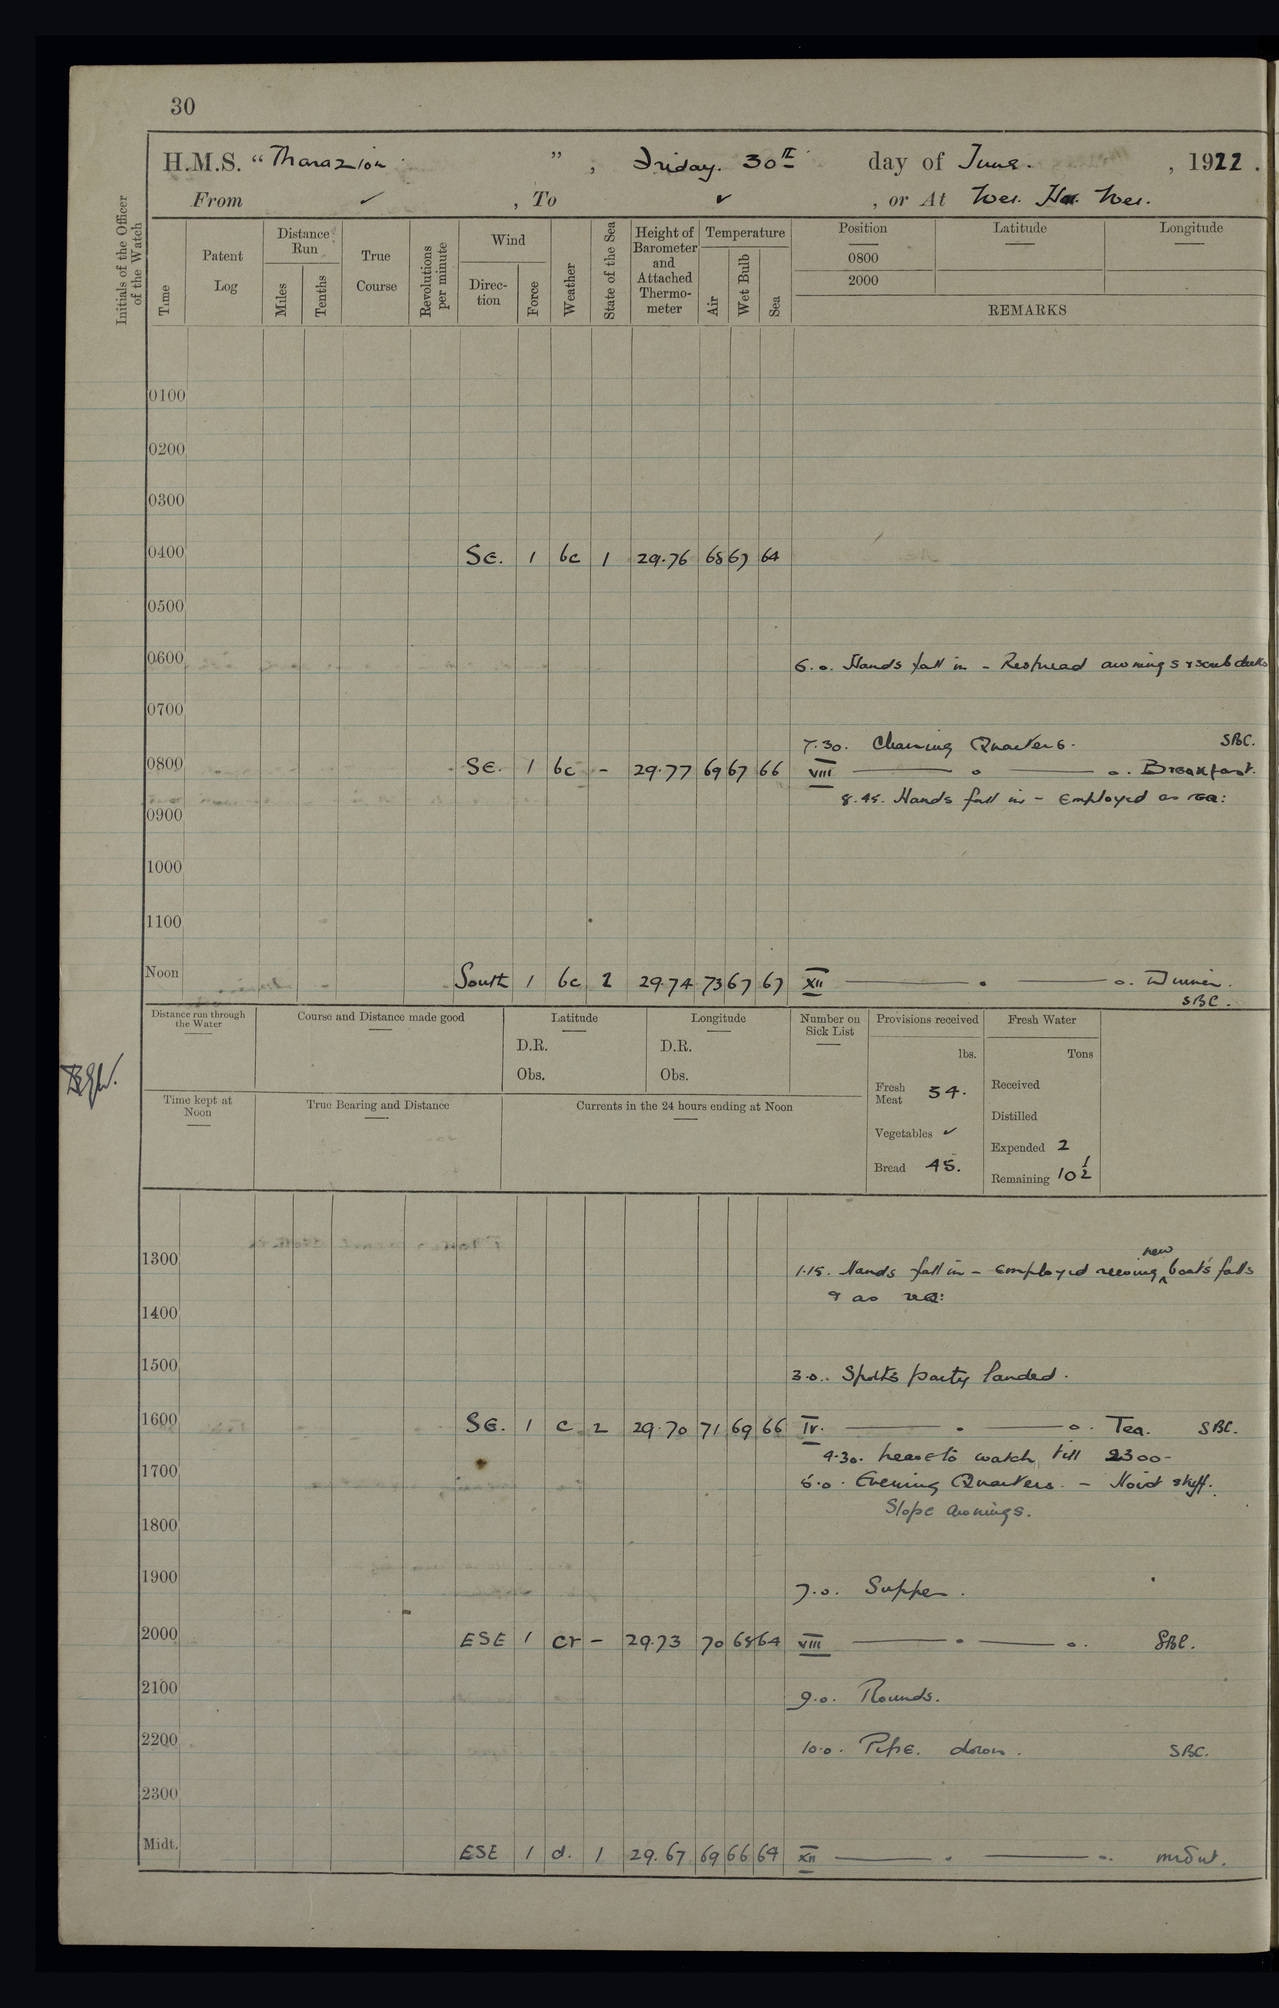 30
H.M.S. "Marazion", Friday. 30th day of June. , 1922.
From ✓ , To ✓ , or At Wei. Hai. Wei.
Initials of the Officer of the Watch
Time
Patent Log
Distance Run
Miles
Tenths
True Course
Revolutions per minute
Wind
Direction
Force
Weather
State of the Sea
Height of Barometer and Attached Thermometer
Temperature
Air
Wet Bulb
Sea
Position
0800
2000
Latitude
Longitude
REMARKS
0100
0200
0300
0400 SE. 1 bc 1 29.76 68 67 64
0500
0600 6.0. Hands fall in - Respread awnings & scrub decks
0700
7.30. Cleaning Quarters. SBC.
0800 SE. 1 bc - 29.77 69 67 66 VIII — o — o. Breakfast.
8.45. Hands fall in - Employed as req:
0900
1000
1100
Noon South 1 bc 2 29.74 73 67 67 XII — o — o. Dinner.
SBC.
Distance run through the Water
Course and Distance made good
Latitude
D.R.
Obs.
Longitude
D.R.
Obs.
Number on Sick List
Provisions received
lbs.
Fresh Meat 54.
Vegetables ✓
Bread 45.
Fresh Water
Tons
Received
Distilled
Expended 2
Remaining 10 1/2
Time kept at Noon
True Bearing and Distance
Currents in the 24 hours ending at Noon
1300 1.15. Hands fall in - Employed reeving new boat's falls
& as req:
1400
1500 3.0. Sports party landed.
1600 SE. 1 c 2 29.70 71 69 66 IV. — o — o. Tea. SBC.
4.30. Leave to watch till 2300-
1700 5.0. Evening Quarters. - Hoist skiff.
Slope awnings.
1800
1900 7.0. Supper.
2000 ESE 1 cr - 29.73 70 68 64 VIII — o — o. SBC.
2100 9.0. Rounds.
2200 10.0. Pipe down. SBC.
2300
Midt. ESE 1 d. 1 29.67 69 66 64 XII — o — o. midnt.